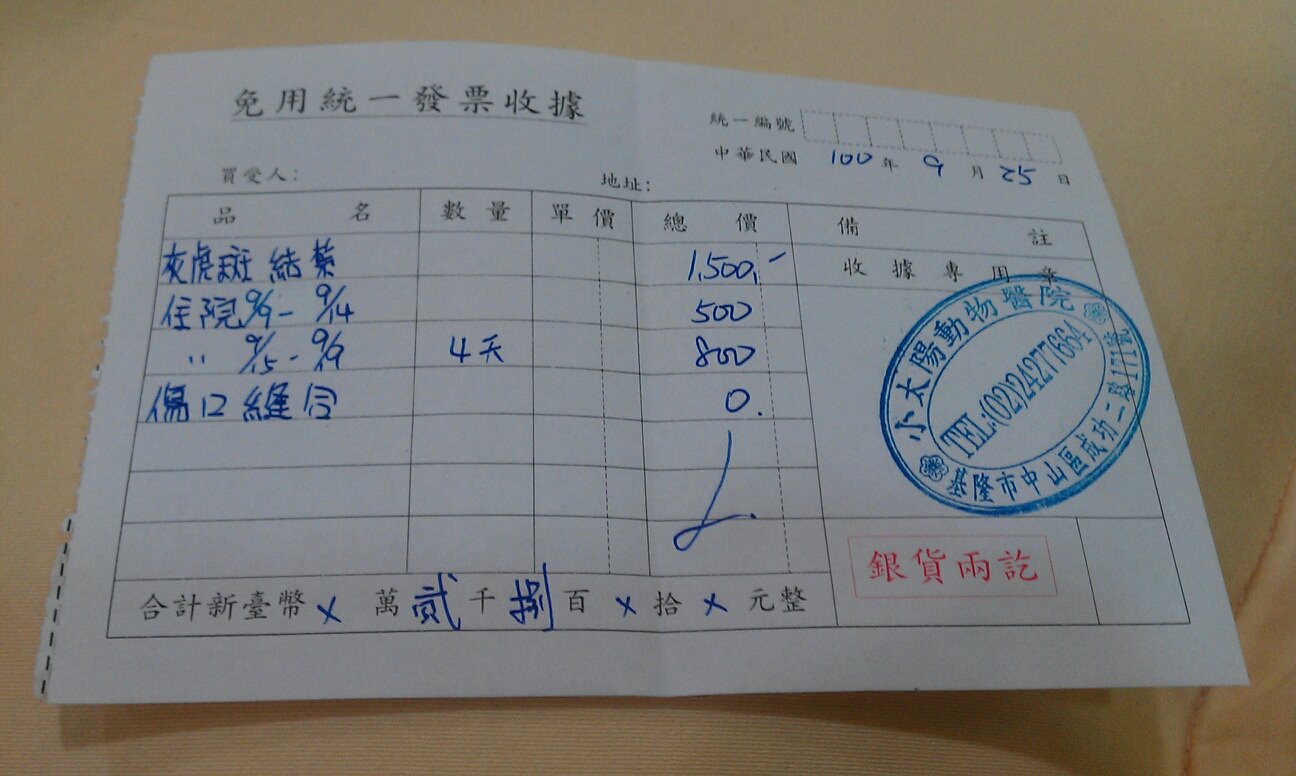 免用統一發票收據
統一編號
中華民國 100 年 9 月 25 日
買受人: 地址:
品名 數量 單價 總價 備註
收據專用章
灰虎斑 結紮 1,500,-
住院 9/9 - 9/14 500
〃 9/15 - 9/19 4天 800
傷口縫合 0.
小太陽動物醫院
TEL:(02)24277664
基隆市中山區成功二路177號
銀貨兩訖
合計新臺幣 x 萬 貳 千 捌 百 x 拾 x 元整